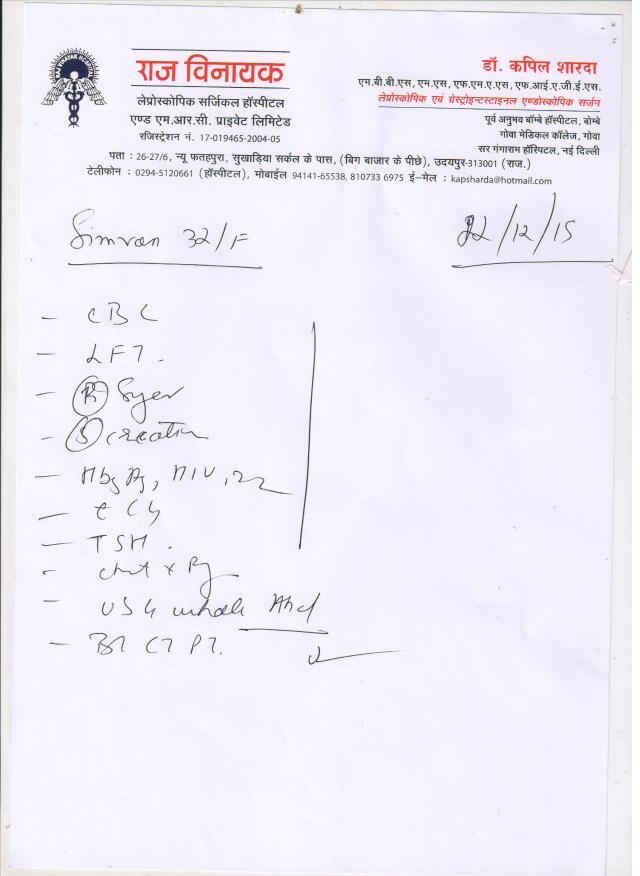 राज विनायक
लेप्रोस्कोपिक सर्जिकल हॉस्पीटल
एण्ड एम.आर.सी. प्राइवेट लिमिटेड
रजिस्ट्रेशन नं. 17-019465-2004-05
डॉ. कपिल शारदा
एम.बी.बी.एस, एम.एस, एफ.एम.ए.एस, एफ.आई.ए.जी.ई.एस.
लेप्रोस्कोपिक एवं गेस्ट्रोइन्टस्टाइनल एण्डोस्कोपिक सर्जन
पूर्व अनुभव बॉम्बे हॉस्पीटल, बोम्बे
गोवा मेडिकल कॉलेज, गोवा
सर गंगाराम हॉस्पिटल, नई दिल्ली
पता : 26-27/6, न्यू फतहपुरा, सुखाड़िया सर्कल के पास, (बिग बाजार के पीछे), उदयपुर-313001 (राज.)
टेलीफोन : 0294-5120661 (हॉस्पीटल), मोबाईल 94141-65538, 810733 6975 ई-मेल : kapsharda@hotmail.com
Simran 32/F
22/12/15
- CBC
- LFT.
- (R) Suger
- (S) creatin
- HbsAg, HIV,
- ECG
- TSH.
- chest x Ray
- USG whole Abd
- BT CT PT.